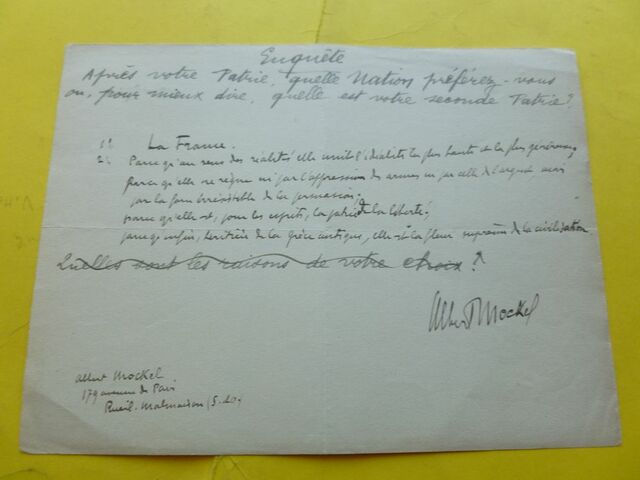 Enquête
Après votre Patrie, quelle Nation préférez-vous
ou, pour mieux dire, quelle est votre seconde Patrie?
1º La France.
2º Parce qu'au sens des réalités elle unit l'idéalité la plus haute et la plus généreuse;
parce qu'elle ne règne ni par l'oppression des armes ni par celle de l'argent mais
par la force irrésistible de la persuasion;
parce qu'elle est, pour les esprits, la patrie de la liberté;
parce qu'enfin, héritière de la Grèce antique, elle est la fleur suprême de la civilisation.
Quelles sont les raisons de votre choix?
Albert Mockel
Albert Mockel
179 avenue de Paris
Rueil-Malmaison (S.&O.)